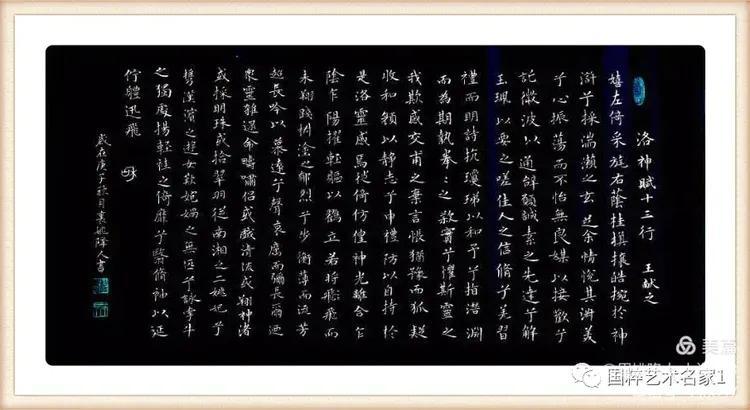 洛神賦十三行 王献之
嬉左倚采旄右蔭桂旗攘皓捥於神
滸兮采湍瀨之玄芝余情悅其淑美
兮心振蕩而不怡無良媒以接歡兮
託微波以通辭願誠素之先達兮解
玉珮以要之嗟佳人之信脩兮羌習
禮而明詩抗瓊珶以和予兮指潛淵
而為期執拳〻之款實兮懼斯靈之
我欺感交甫之棄言悵猶豫而狐疑
收和顏以靜志兮申禮防以自持於
是洛靈感焉徙倚仿偟神光離合乍
陰乍陽擢輕軀以鶴立若將飛而
未翔踐椒塗之郁烈兮步衡薄而流芳
超長吟以慕遠兮聲哀厲而彌長爾迺
衆靈雜遝命疇嘯侶或戲清流或翔神渚
或採明珠或拾翠羽從南湘之二妃兮
攜漢濱之遊女歎匏媧之無匹兮詠牽牛
之獨處揚輕袿之倚靡兮翳脩袖以延
佇體迅飛
歲在庚子秋月襄姚隆人書
美篇
国粹艺术名家1